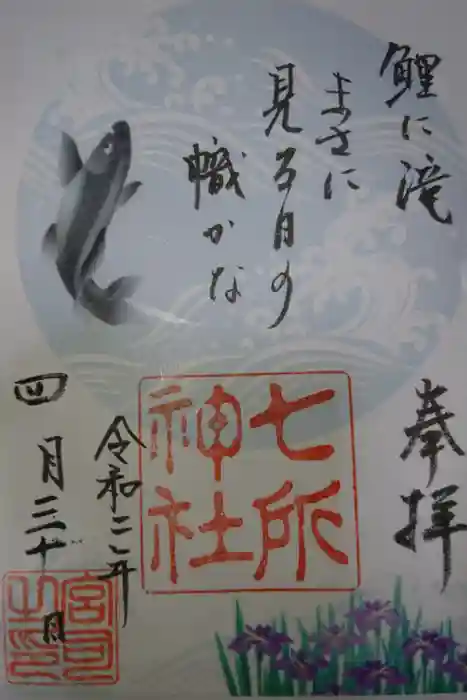 鯉に滝
まさに
見る月の
幟かな
奉拝
七所
神社
令和二年
四月三十日
宮司
之印